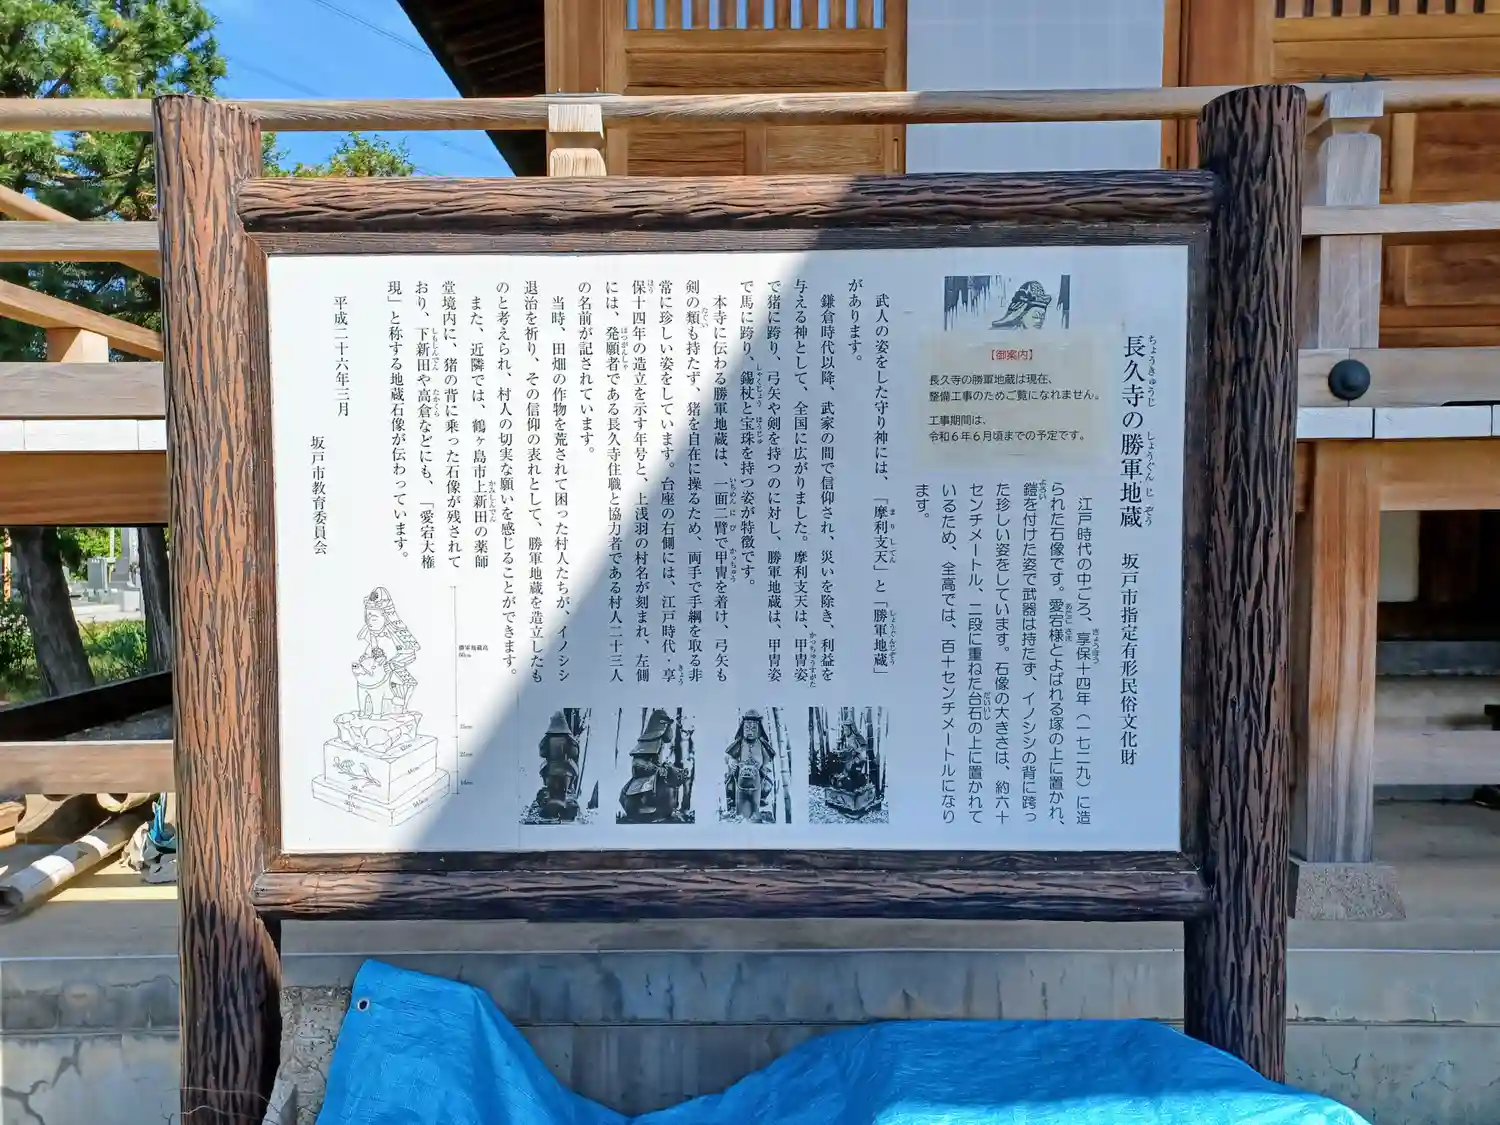 長久寺の勝軍地蔵　坂戸市指定有形民俗文化財
【御案内】
長久寺の勝軍地蔵は現在、
整備工事のためご覧になれません。
工事期間は、
令和6年6月頃までの予定です。
江戸時代の中ごろ、享保十四年（一七二九）に造
られた石像です。愛宕様とよばれる塚の上に置かれ、
鎧を付けた姿で武器は持たず、イノシシの背に跨っ
た珍しい姿をしています。石像の大きさは、約六十
センチメートル、二段に重ねた台石の上に置かれて
いるため、全高では、百十センチメートルになり
ます。
武人の姿をした守り神には、「摩利支天」と「勝軍地蔵」
があります。
鎌倉時代以降、武家の間で信仰され、災いを除き、利益を
与える神として、全国に広がりました。摩利支天は、甲冑姿
で猪に跨り、弓矢や剣を持つのに対し、勝軍地蔵は、甲冑姿
で馬に跨り、錫杖と宝珠を持つ姿が特徴です。
本寺に伝わる勝軍地蔵は、一面二臂で甲冑を着け、弓矢も
剣の類も持たず、猪を自在に操るため、両手で手綱を取る非
常に珍しい姿をしています。台座の右側には、江戸時代・享
保十四年の造立を示す年号と、上浅羽の村名が刻まれ、左側
には、発願者である長久寺住職と協力者である村人二十三人
の名前が記されています。
当時、田畑の作物を荒されて困った村人たちが、イノシシ
退治を祈り、その信仰の表れとして、勝軍地蔵を造立したも
のと考えられ、村人の切実な願いを感じることができます。
また、近隣では、鶴ヶ島市上新田の薬師
堂境内に、猪の背に乗った石像が残されて
おり、下新田や高倉などにも、「愛宕大権
現」と称する地蔵石像が伝わっています。
平成二十六年三月
坂戸市教育委員会
勝軍地蔵高
60cm